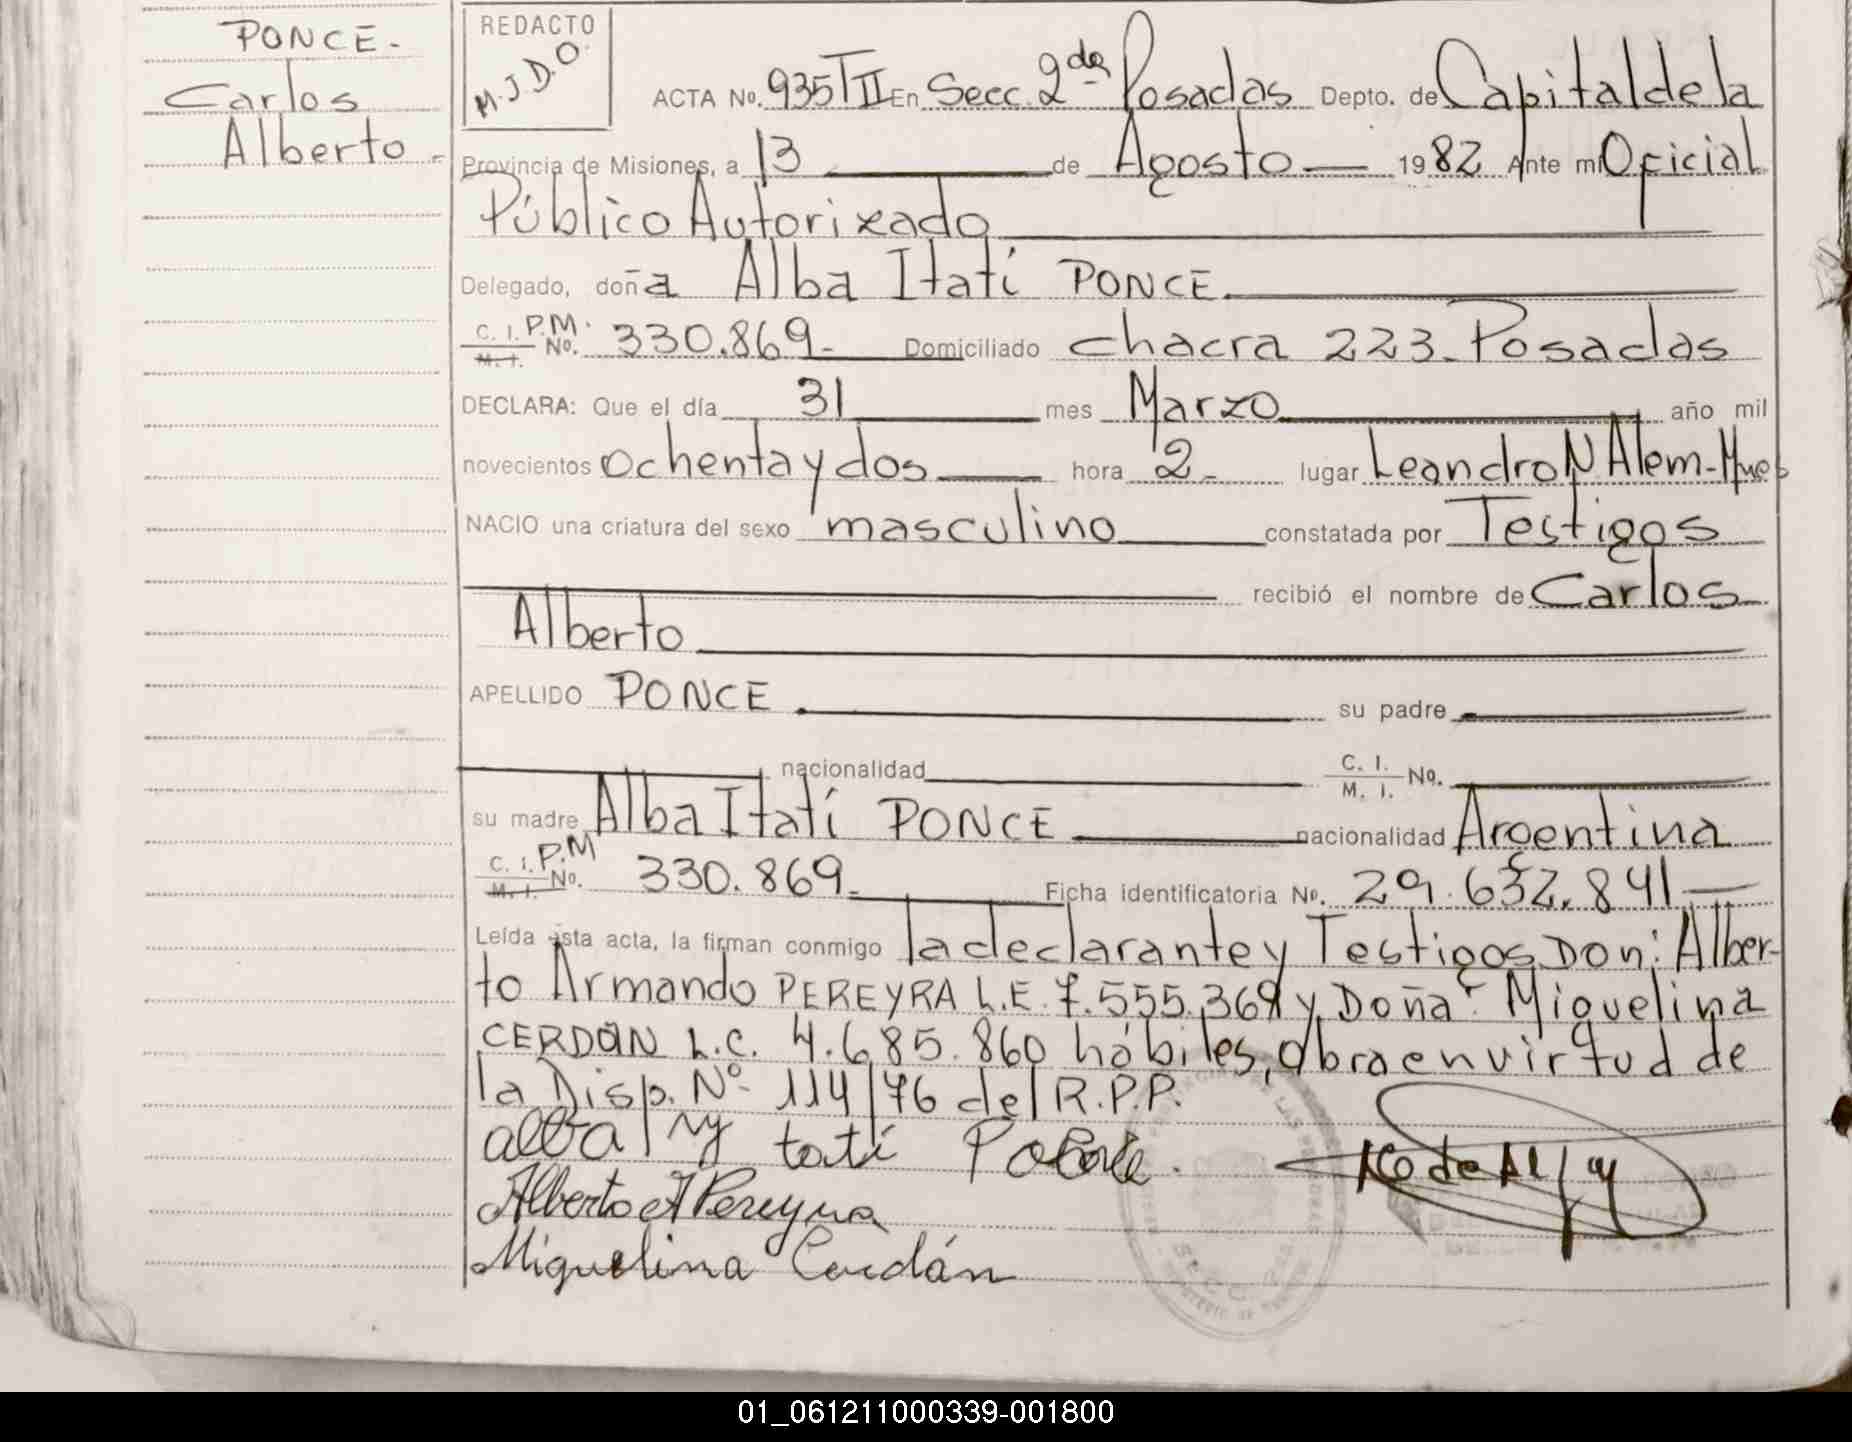 PONCE.-
Carlos
Alberto.-
REDACTO
M.J.D.O.
ACTA No. 935 T II En Secc. 2da Posadas Depto. de Capital de la
Provincia de Misiones, a 13 de Agosto 1982 Ante mi Oficial
Público Autorizado
Delegado, doña Alba Itatí PONCE.
C. I. P.M. M. I. No. 330.869.- Domiciliado chacra 223-Posadas
DECLARA: Que el día 31 mes Marzo año mil
novecientos ochenta y dos hora 2.- lugar Leandro N Alem-Mnes
NACIO una criatura del sexo masculino constatada por Testigos
recibió el nombre de Carlos
Alberto
APELLIDO PONCE. su padre
nacionalidad C. I. M. I. No.
su madre Alba Itatí PONCE nacionalidad Argentina
C. I. P.M M. I. No. 330.869.- Ficha identificatoria No. 29.632.841
Leída ésta acta, la firman conmigo la declarante y Testigos Don: Alber-
to Armando PEREYRA L.E. 7.555.369 y Doña: Miguelina
CERDÁN L.C. 4.685.860 hábiles, obra en virtud de
la Disp. Nº 114/76 del R.P.P.
alba tatí
Alberto A Pereyra
Miguelina Cerdán
01_061211000339-001800